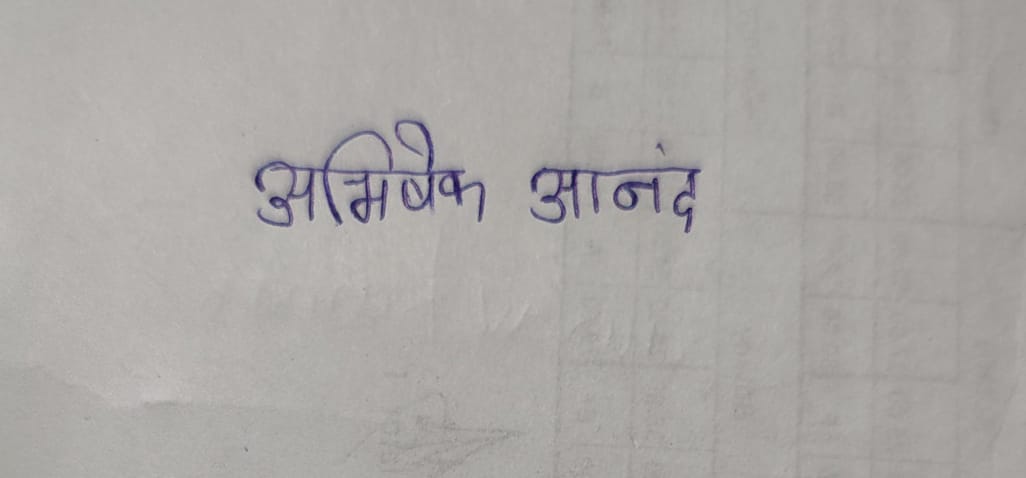 अभिषेक आनंद